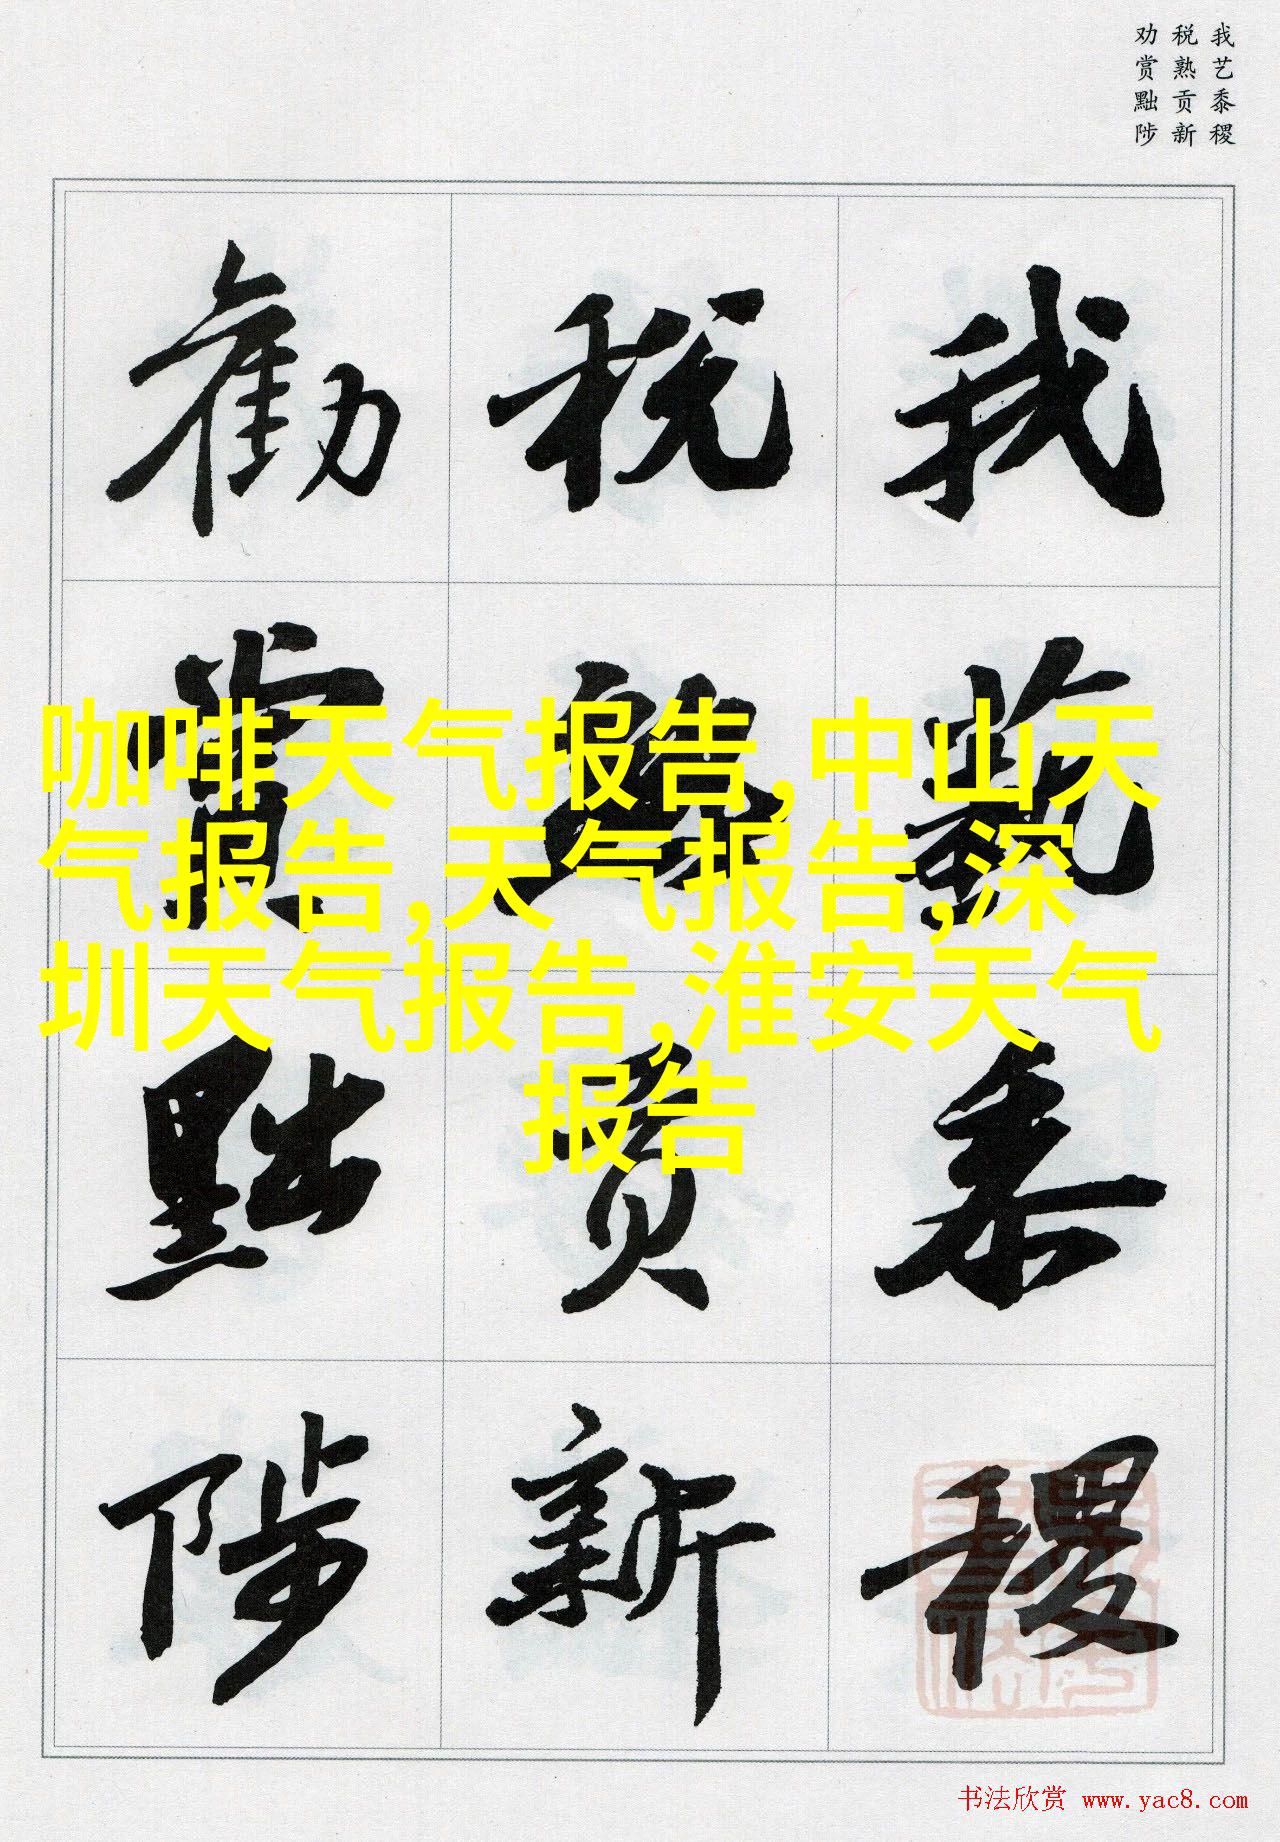 我艺黍稷
税熟贡新
劝赏黜陟
我藝黍稷
税熟貢新
勸賞黜陟
咖啡天气报告,中山天
气报告,天气报告,深
圳天气报告,淮安天气
报告
书法欣赏 www.yac8.com